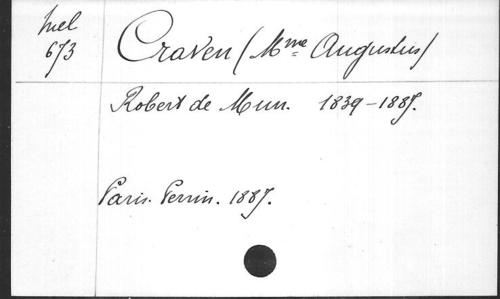 Mel
673
Craven (Mme Augustus)
Robert de Mun. 1839-1887.
Paris. Perrin. 1887.